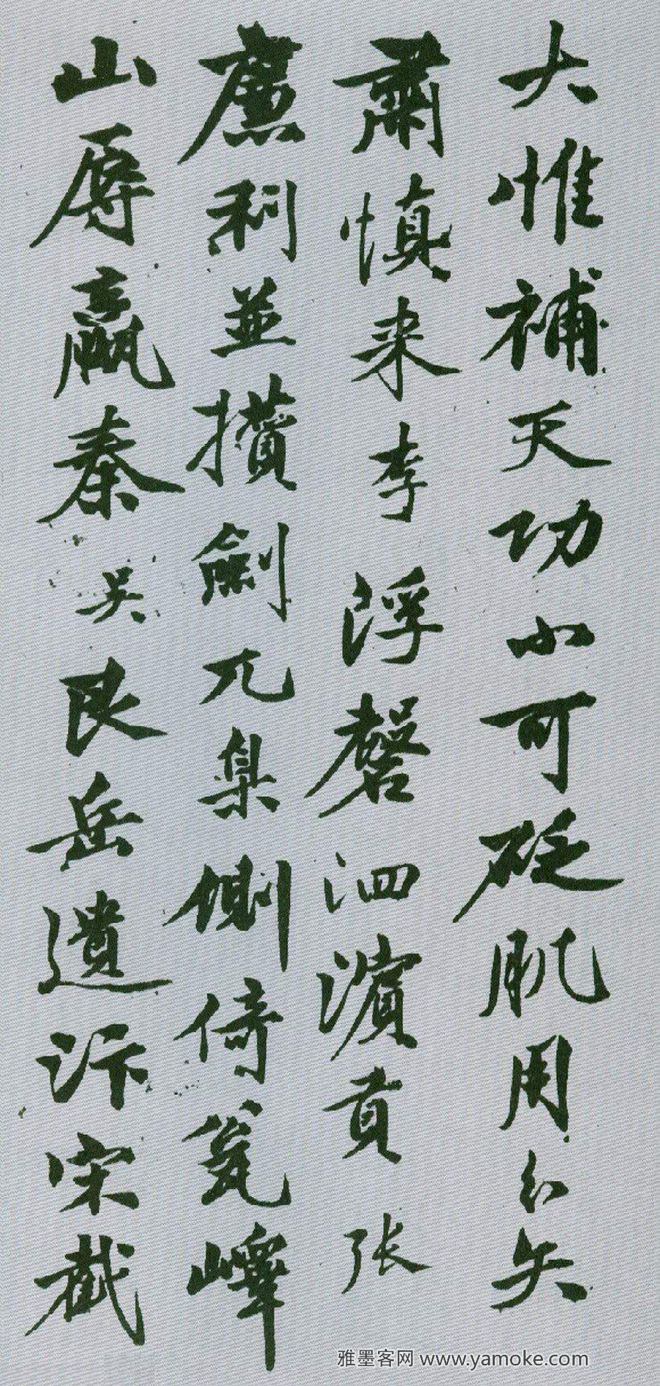 大惟補天功小可砭肌用以矢
肅慎来李浮磬泗濱貢张
廉利並攢劍兀臬側倚瓮嶧
山辱嬴秦吴艮岳遺汴宋截
雅墨客网 www.yamoke.com